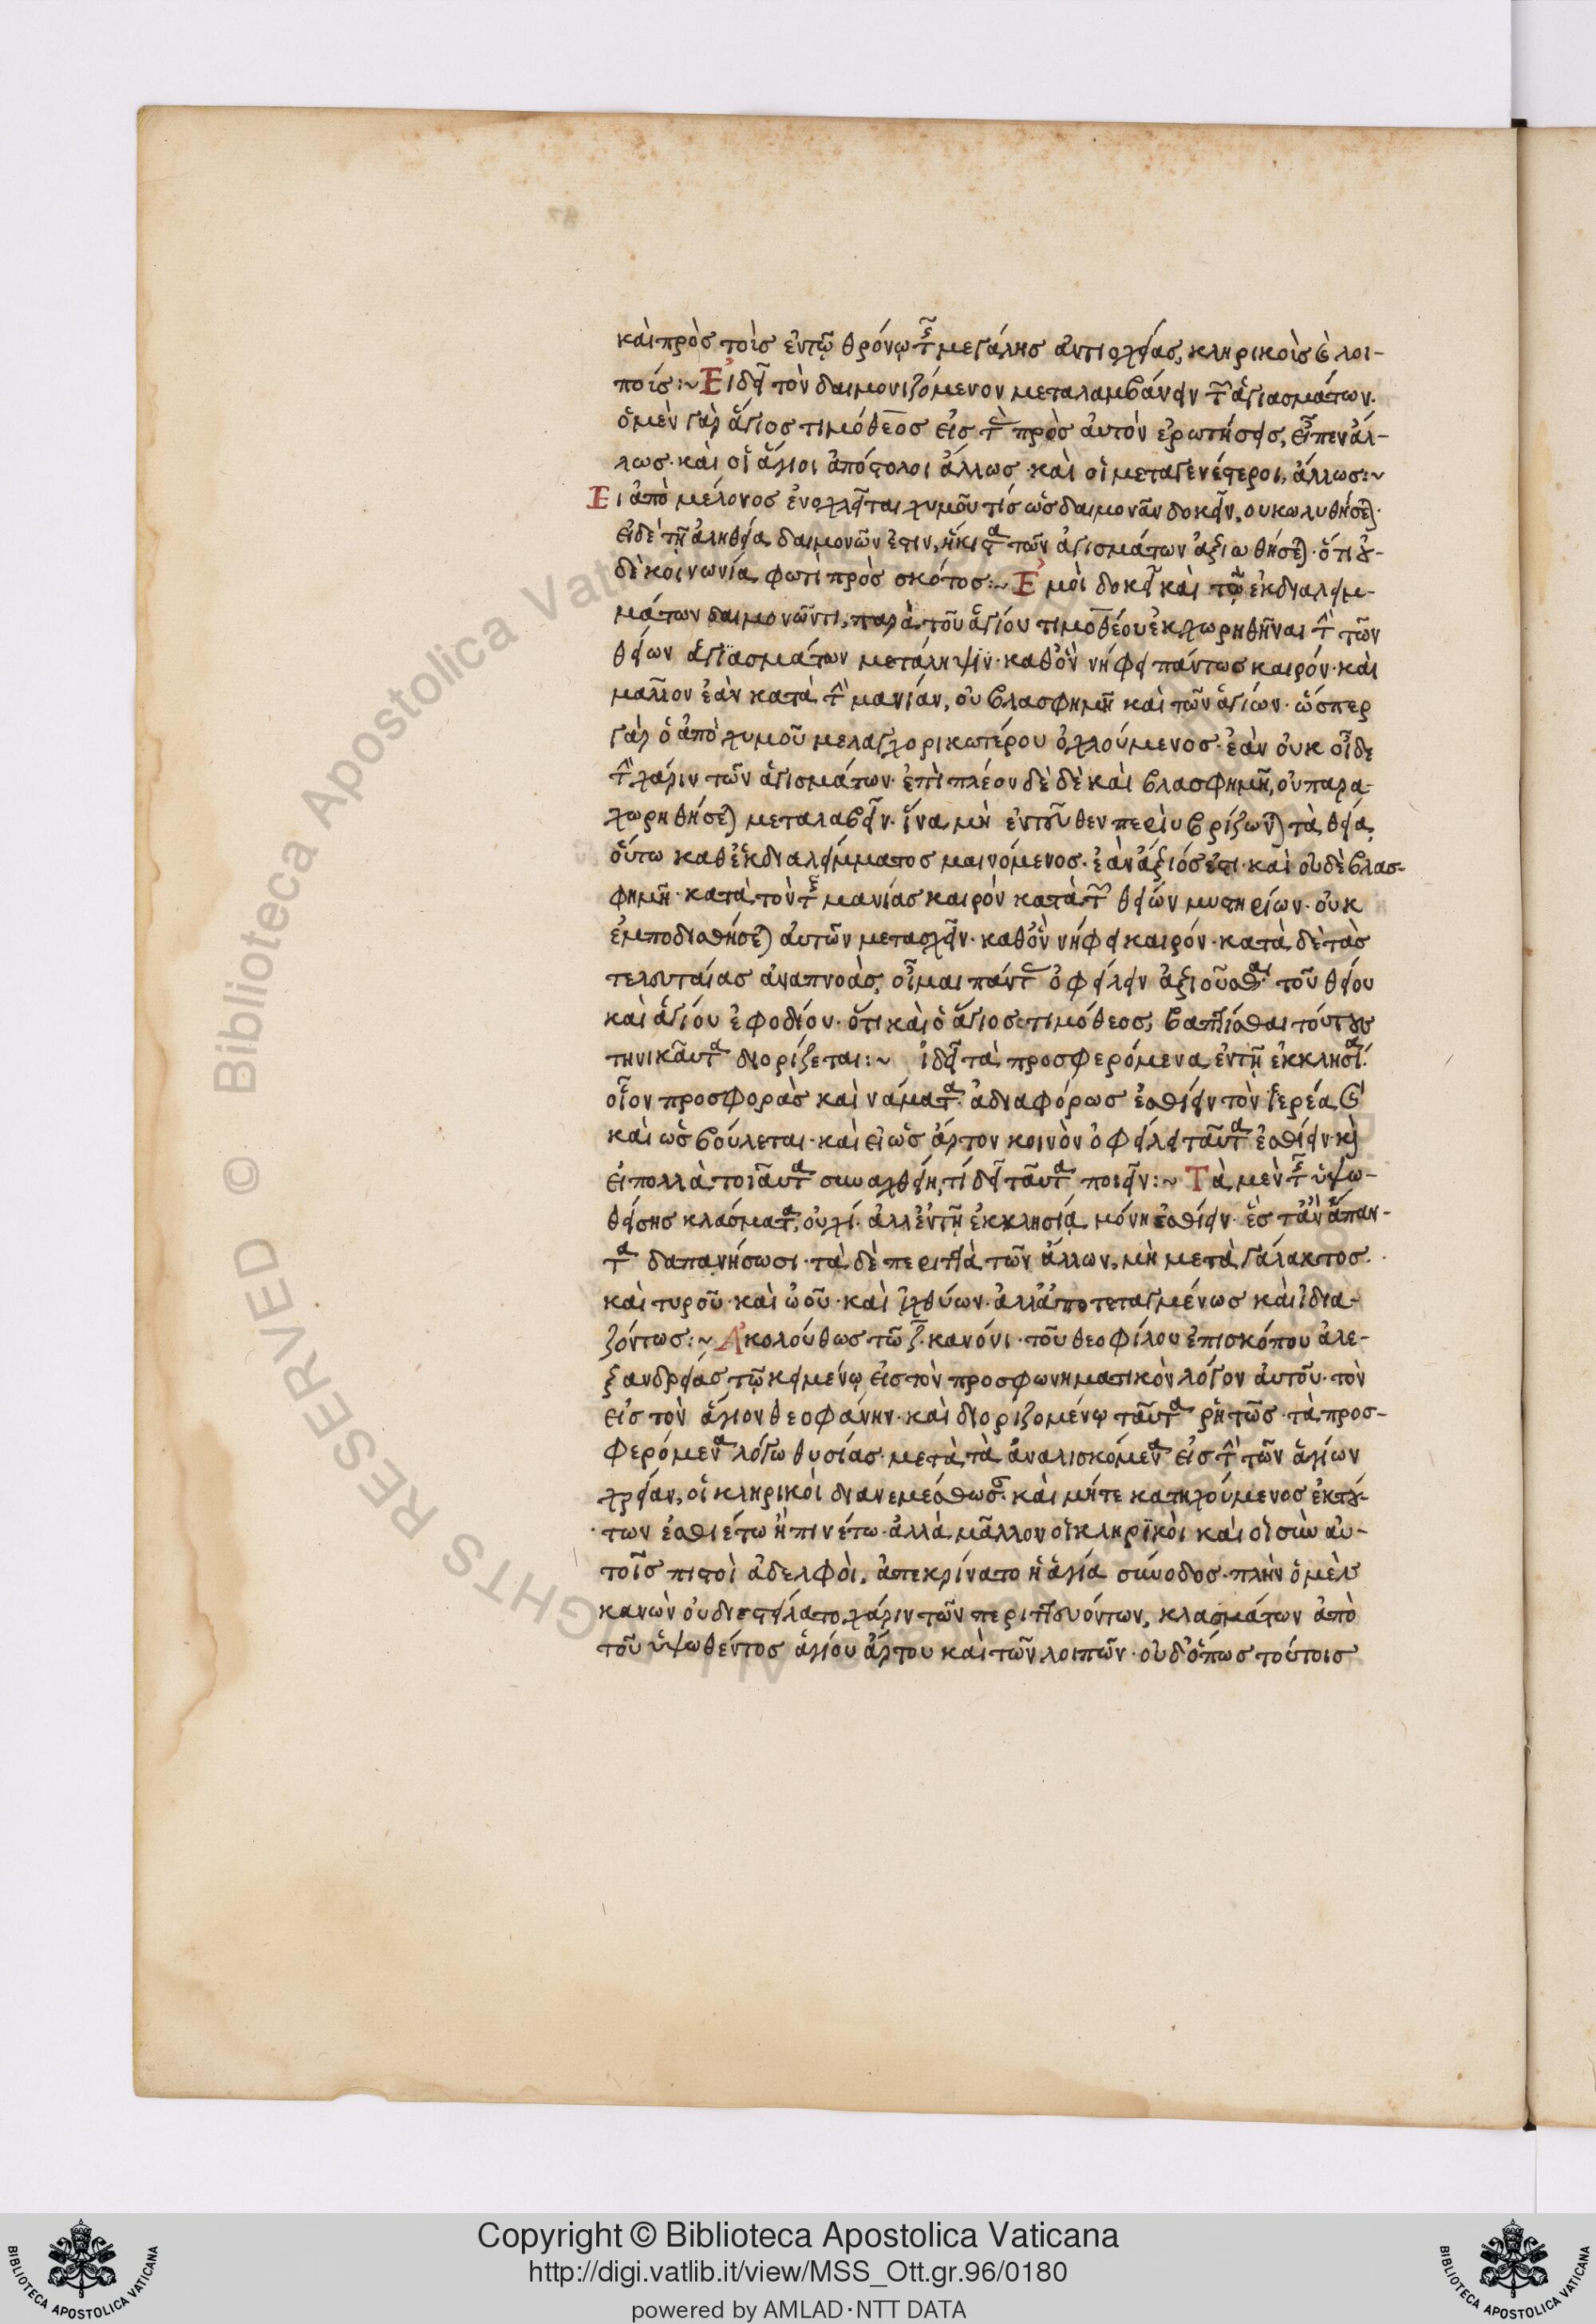 καὶ πρὸς τοῖς ἐν τῷ θρόνῳ τῆς μεγάλης ἀντιοχείας, κληρικοῖς καὶ λοι-
ποῖς:~ Εἰ δεῖ τὸν δαιμονιζόμενον μεταλαμβάνειν τῶν ἁγιασμάτων.
ὁ μὲν γὰρ ἅγιος τιμόθεος εἰς τὰς πρὸς αὐτὸν ἐρωτήσεις, εἶπεν ἄλ-
λως· καὶ οἱ ἅγιοι ἀπόστολοι ἄλλως· καὶ οἱ μεταγενέστεροι, ἄλλως:~
Εἰ ἀπὸ μέλονος ἐνοχλεῖται χυμοῦ τίς ὡς δαιμονᾶν δοκεῖν, οὐ κωλυθήσεται·
εἰ δὲ τῇ ἀληθείᾳ δαιμονῶν ἐστιν, ἥκιστα τῶν ἁγισμάτων ἀξιωθήσεται· ὅτι οὐ-
δὲ κοινωνία φωτὶ πρὸς σκότος:~ Ἐμοὶ δοκεῖ καὶ τῷ ἐκ διαλειμ-
μάτων δαιμονῶντι, παρὰ τοῦ ἁγίου τιμοθέου ἐκχωρηθῆναι τὴν τῶν
θείων ἁγϊασμάτων μετάληψϊν· καθ' ὃν νήφει πάντως καιρόν· καὶ
μᾶλλον ἐὰν κατὰ τὴν μανίαν, οὐ βλασφημῇ καὶ τῶν ἁγίων· ὥσπερ
γὰρ ὁ ἀπὸ χυμοῦ μελαγχορικωτέρου ὀχλούμενος· ἐὰν οὐκ οἶδε
τὴν χάριν τῶν ἁγισμάτων· ἐπὶ πλέον δὲ δὲ καὶ βλασφημῇ, οὐ παρα-
χωρηθήσεται μεταλαβεῖν· ἵνα μὴ ἐντεῦθεν περιυβρίζωνται τὰ θεία,
οὕτω καθ' ἐκ διαλείμματος μαινόμενος· ἐὰν ἄξιός ἐστι· καὶ οὐδὲ βλασ-
φημῇ· κατὰ τὸν τῆς μανίας καιρὸν κατὰ τῶν θείων μυστηρίων· οὐκ
ἐμποδισθήσεται αὐτῶν μετασχεῖν· καθ' ὃν νήφει καιρόν· κατὰ δὲ τὰς
τελευταίας ἀναπνοὰς, οἶμαι πάντας ὀφείλειν ἀξιοῦσθαι τοῦ θείου
καὶ ἁγίου ἐφοδίου· ὅτι καὶ ὁ ἅγιος τιμόθεος, βαπτίσθαι τούτους
τηνικαῦτα διορίζεται:~ ἰ δεῖ τὰ προσφερόμενα ἐν τῇ ἐκκλησίᾳ·
οἷον προσφορὰς καὶ νάματα· ἀδιαφόρως ἐσθίειν τὸν ἱερέα
καὶ ὡς βούλεται· καὶ εἰ ὡς ἄρτον κοινὸν ὀφείλει ταῦτα ἐσθίειν· καὶ
εἰ πολλὰ τοιαῦτα συναχθείη, τί δεῖ ταῦτα ποιεῖν:~ Τὰ μὲν τῆς ὑψω-
θείσης κλάσματα, οὐχί· ἀλλ' ἐν τῇ ἐκκλησίᾳ μόνῃ ἐσθίειν· ἕς τ' ἂν ἅπαν-
τα δαπανήσωσι· τὰ δὲ περιττὰ τῶν ἄλλων, μὴ μετὰ γάλακτος·
καὶ τυροῦ· καὶ ὠοῦ· καὶ ἰχθύων· ἀλλ' ἀποτεταγμένως καὶ ἰδια-
ζόντως:~ Ἀκολούθως τῷ ζ̅· κανόνι· τοῦ θεοφίλου ἐπισκόπου ἀλε-
ξανδρείας τῷ κειμένῳ εἰς τὸν προσφωνηματικὸν λόγον αὐτοῦ· τὸν
εἰς τὸν ἅγιον θεοφάνην· καὶ διοριζομένῳ ταῦτα ῥητῶς· τὰ προσ-
φερόμενα λόγω θυσίας· μετὰ τὰ ἀναλισκόμενα εἰς τὴν τῶν ἁγίων
χρείαν, οἱ κληρικοὶ διανεμέσθωσαν· καὶ μήτε κατηχούμενος ἐκ τού-
των ἐσθιέτω ἢ πινέτω· ἀλλὰ μᾶλλον οἱ κληρϊκοὶ καὶ οἱ σὺν αὐ-
τοῖς πιστοὶ ἀδελφοὶ, ἀπεκρίνατο ἡ ἁγία σύνοδος· πλὴν ὁ μὲν
κανὼν οὐ διεστείλατο χάριν τῶν περιττευόντων, κλασμάτων ἀπὸ
τοῦ ὑψωθέντος ἁγίου ἄρτου καὶ τῶν λοιπῶν· οὐδ' ὅπως τούτοις
Copyright © Biblioteca Apostolica Vaticana
http://digi.vatlib.it/view/MSS_Ott.gr.96/0180
powered by AMLAD·NTT DATA